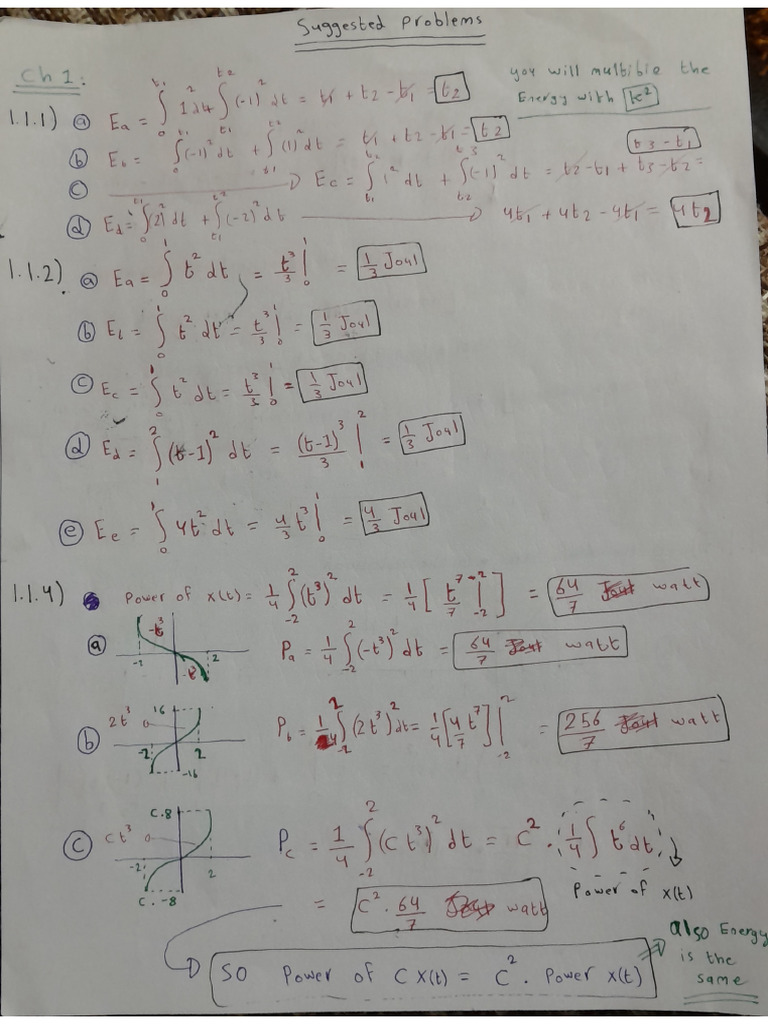 Suggested Problems
Ch 1:
you will multible the
Energy with k²
1.1.1) ⓐ Ea = ∫₀^t₁ 1² dt + ∫_t₁^t₂ (-1)² dt = t₁ + t₂ - t₁ = t₂
ⓑ E = ∫₀^t₁ (-1)² dt + ∫_t₁^t₂ (1)² dt = t₁ + t₂ - t₁ = t₂
ⓒ → Ec = ∫_t₁^t₂ 1² dt + ∫_t₂^t₃ (-1)² dt = t₂ - t₁ + t₃ - t₂ = t₃ - t₁
ⓓ Ed = ∫₀^t₁ (2)² dt + ∫_t₁^t₂ (-2)² dt → 4t₁ + 4t₂ - 4t₁ = 4t₂
1.1.2) ⓐ Ea = ∫₀^1 t² dt = t³/3 |₀^1 = 1/3 Joul
ⓑ Eb = ∫₀^1 t² dt = t³/3 |₀^1 = 1/3 Joul
ⓒ Ec = ∫₀^1 t² dt = t³/3 |₀^1 = 1/3 Joul
ⓓ Ed = ∫₁^2 (t-1)² dt = (t-1)³/3 |₁^2 = 1/3 Joul
ⓔ Ee = ∫₀^1 4t² dt = 4/3 t³ |₀^1 = 4/3 Joul
1.1.4) Power of x(t) = 1/4 ∫₋₂^2 (t³)² dt = 1/4 [t⁷/7 |₋₂^2] = 64/7 watt
ⓐ -t³ -2 2 -t³ Pa = 1/4 ∫₋₂^2 (-t³)² dt = 64/7 watt
ⓑ 2t³ 16 -2 2 -16 Pb = 1/4 ∫₋₂^2 (2t³)² dt = 1/4 [4/7 t⁷] |₋₂^2 = 256/7 watt
ⓒ ct³ c.8 -2 2 c.-8 Pc = 1/4 ∫₋₂^2 (c t³)² dt = c² . 1/4 ∫ t⁶ dt
Power of x(t)
= c² . 64/7 watt
so Power of C x(t) = C² . Power x(t)
also Energy
is the
same